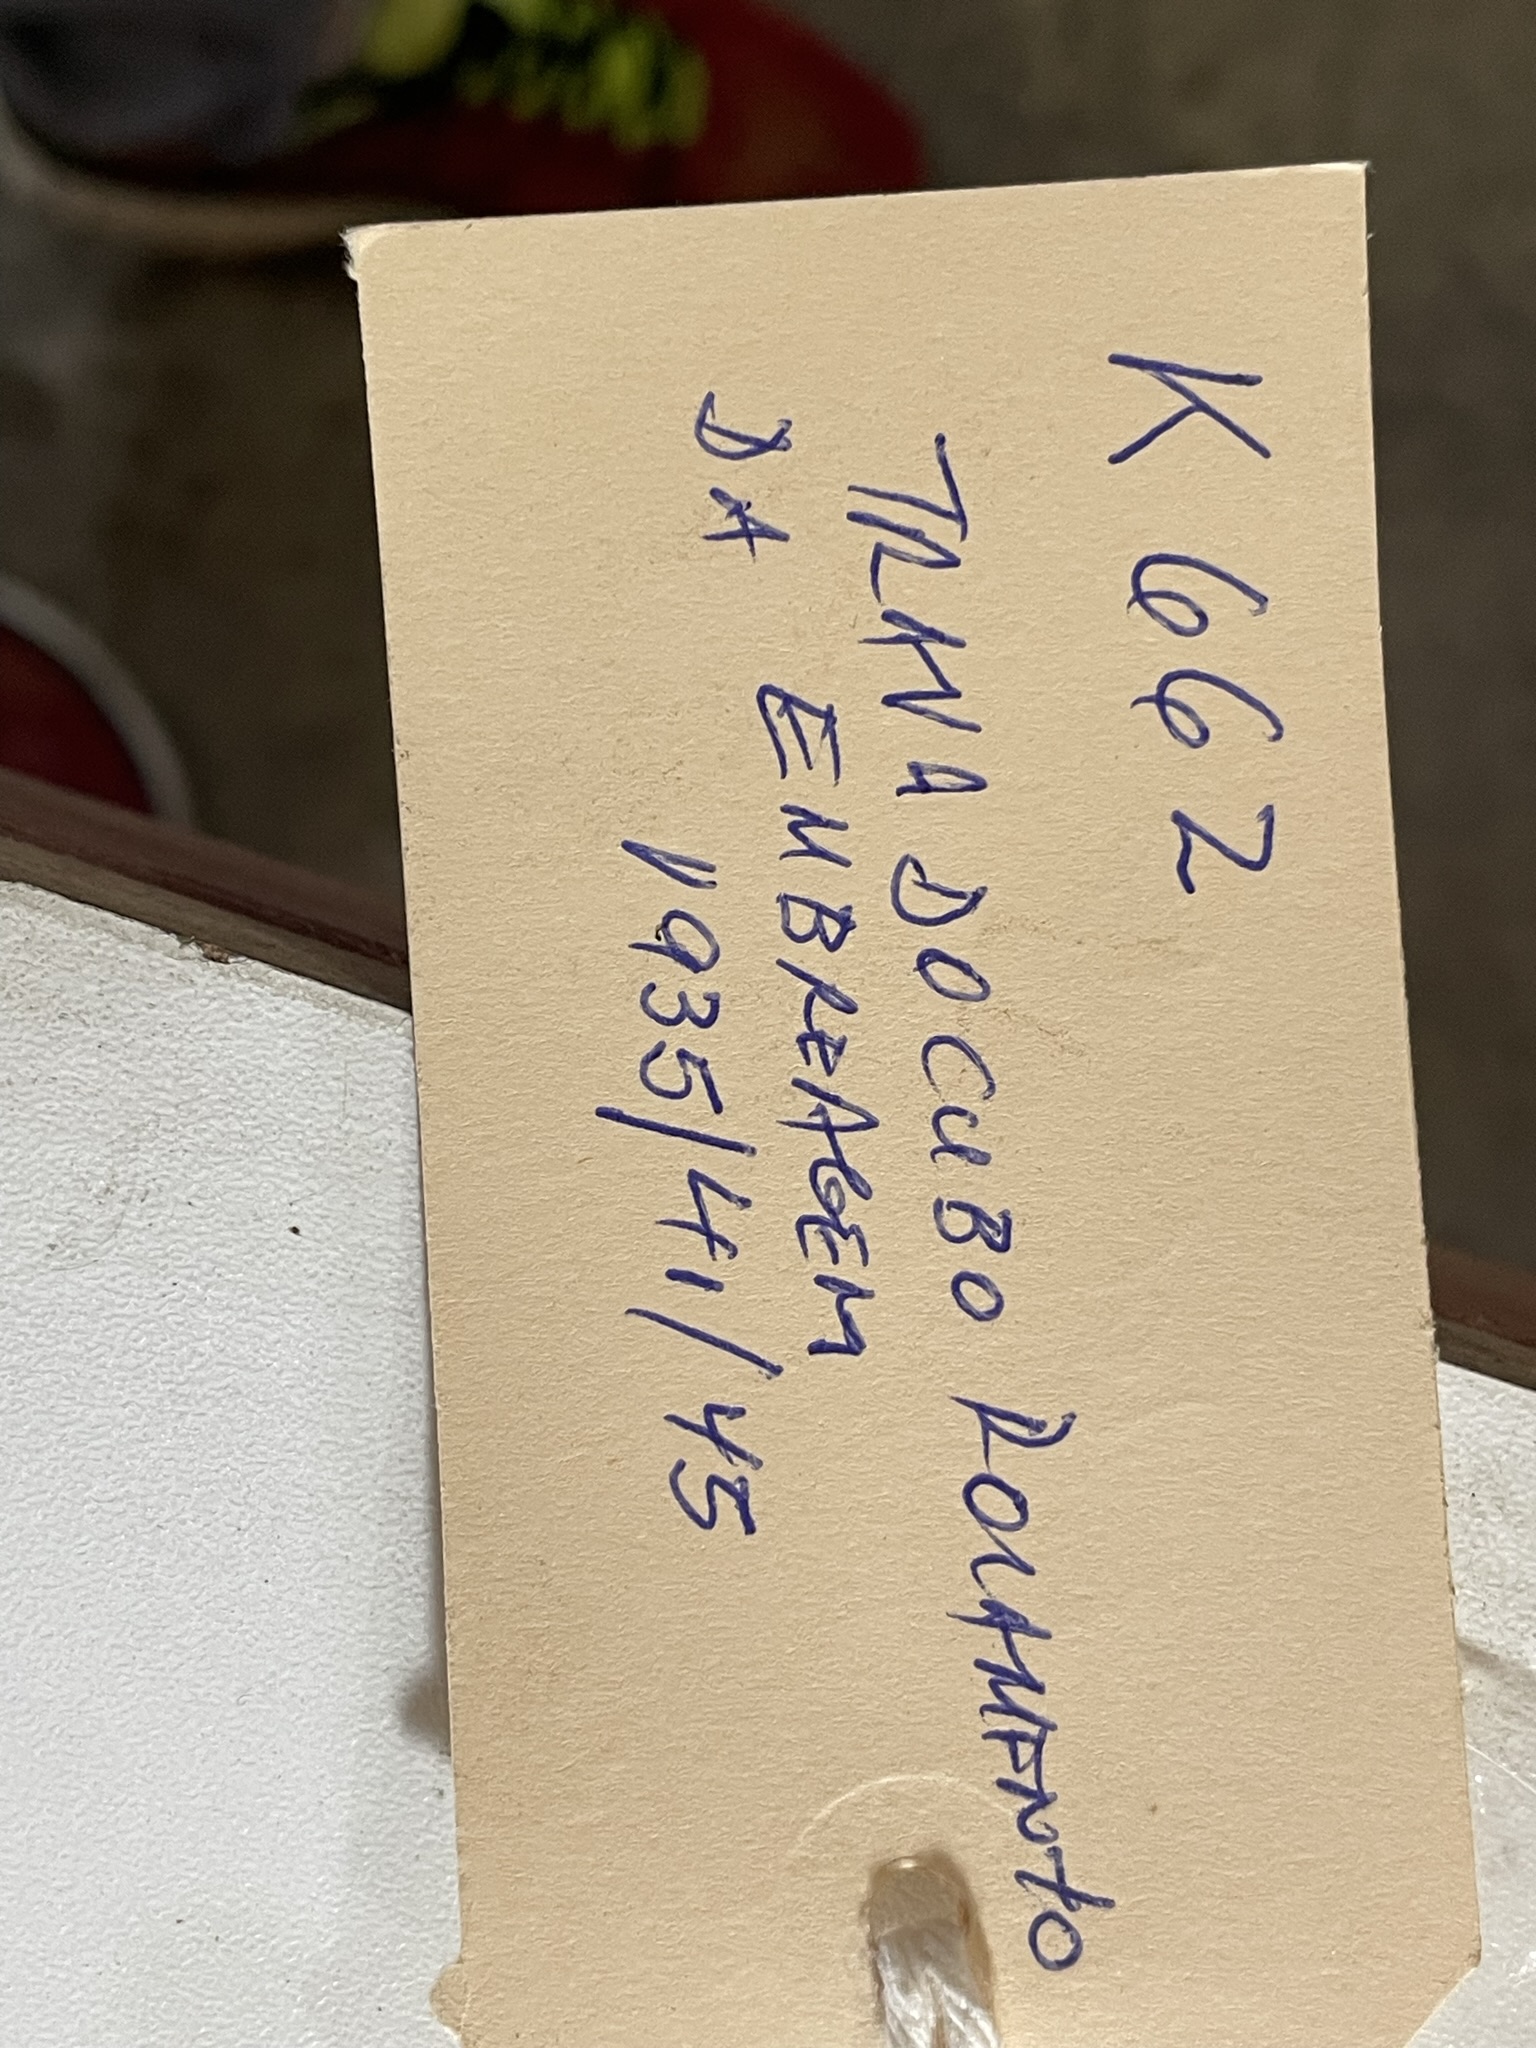 K 662
TRAVA DO CUBO ROLAMENTO
DA EMBREAGEM
1935/41/45